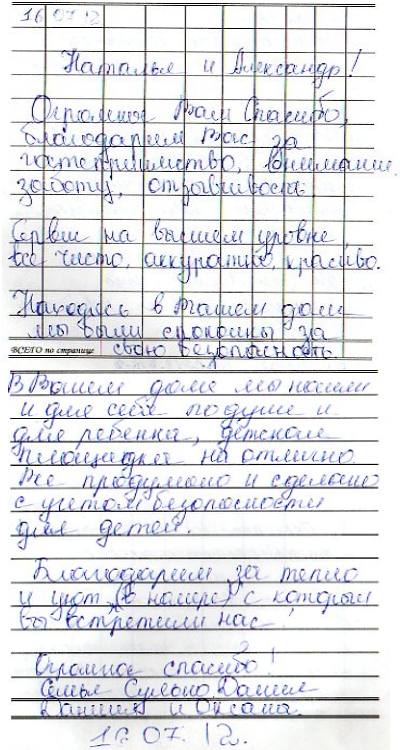 16 07 12
Наталья и Александр!
Огромное Вам Спасибо,
благодарим Вас за
гостеприимство, внимание,
заботу, отзывчивость.
Сервис на высшем уровне,
все чисто, аккуратно, красиво.
Находясь в Вашем доме
мы были спокойны за
ВСЕГО по странице
свою безопасность.
В Вашем доме мы нашли
и для себя по душе и
для ребенка, детская
площадка на отлично.
Все продумано и сделано
с учетом безопасности
для детей.
Благодарим за тепло
и уют (в номере) с которым
вы встретили нас!
Огромное спасибо!
Семья
и Оксана.
16 07. 12.